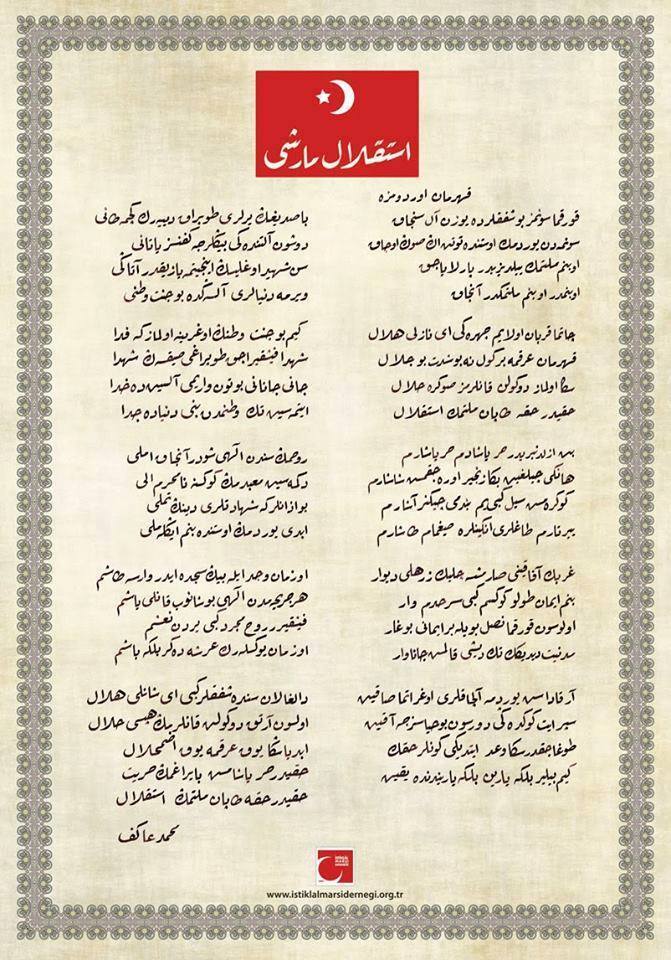 استقلال مارشی
قهرمان اوردومزه
قورقما سونمز بو شفقلرده یوزن آل سنجاق
سونمه‌دن یوردمك اوستنده توتن اڭ صوڭ اوجاق
او بنم ملتمك ییلدیزیدر پارلایاجق
او بنمدر او بنم ملتمكدر آنجاق
چاتما قربان اولایم چهره‌كی ای نازلی هلال
قهرمان عرقمه بر گول نه بو شدت بو جلال
سڭا اولماز دوكولن قانلرمز صوڭره حلال
حقیدر حقه طاپان ملتمك استقلال
بن ازلدنبریدر حر یاشادم حر یاشارم
هانكی چیلغین بڭا زنجیر اوره‌جقمش شاشارم
كوكره‌مش سیل گبی‌یم بندمی چیكنر آشارم
ییرتارم طاغلری انگینلره صیغمام طاشارم
غربك آفاقنی صارمشسه چلیك زرهلی دیوار
بنم ایمان طولو كوكسم گبی سرحدم وار
اولوسون قورقما نصل بویله بر ایمانی بوغار
مدنیت دیدیكك تك دیشی قالمش جاناوار
آرقاداش یوردمه آلچاقلری اوغراتما صاقین
سپر ایت كوكده‌كی دورسون بو حیاسزجه آقین
طوغاجقدر سڭا وعد ایتدیكی كونلر حقك
كیم بیلیر بلكه یارین بلكه یاریندنده یقین
باصدیغك یرلری طوپراق دییه‌رك كچمه طانی
دوشون آلتنده‌كی بیڭلرجه كفنسز یاتانی
سن شهید اوغلیسك اینجیتمه یازیقدر آتاكی
ویرمه دنیالری آلسه‌كده بو جنت وطنی
كیم بو جنت وطنك اوغرینه اولماز كه فدا
شهدا فیشقیراجق طوپراغی صیقسه‌ك شهدا
جانی جانانی بوتون واریمی آلسین ده خدا
ایتمه‌سین تك وطنمدن بنی دنیاده جدا
روحمك سندن الهی شودر آنجاق املی
دكمه‌سین معبدمك كوكسنه نامحرم الی
بو اذانلر كه شهادتلری دینك تملی
ابدی یوردمك اوستنده بنم ایڭله‌ملی
او زمان وجد ایله بیڭ سجده ایدر وارسه طاشم
هر جریحه‌مدن الهی بوشانوب قانلی یاشم
فیشقیرر روح مجرد گبی یردن نعشم
او زمان یوكسله‌رك عرشه دكر بلكه باشم
دالغالان سنده شفقلر گبی ای شانلی هلال
اولسون آرتق دوكولن قانلریمك هپسی حلال
ابدیاً سڭا یوق عرقمه یوق اضمحلال
حقیدر حر یاشامش بایراغمك حریت
حقیدر حقه طاپان ملتمك استقلال
محمد عاكف
İSTİKLAL MARŞI DERNEĞİ
www.istiklalmarsidernegi.org.tr